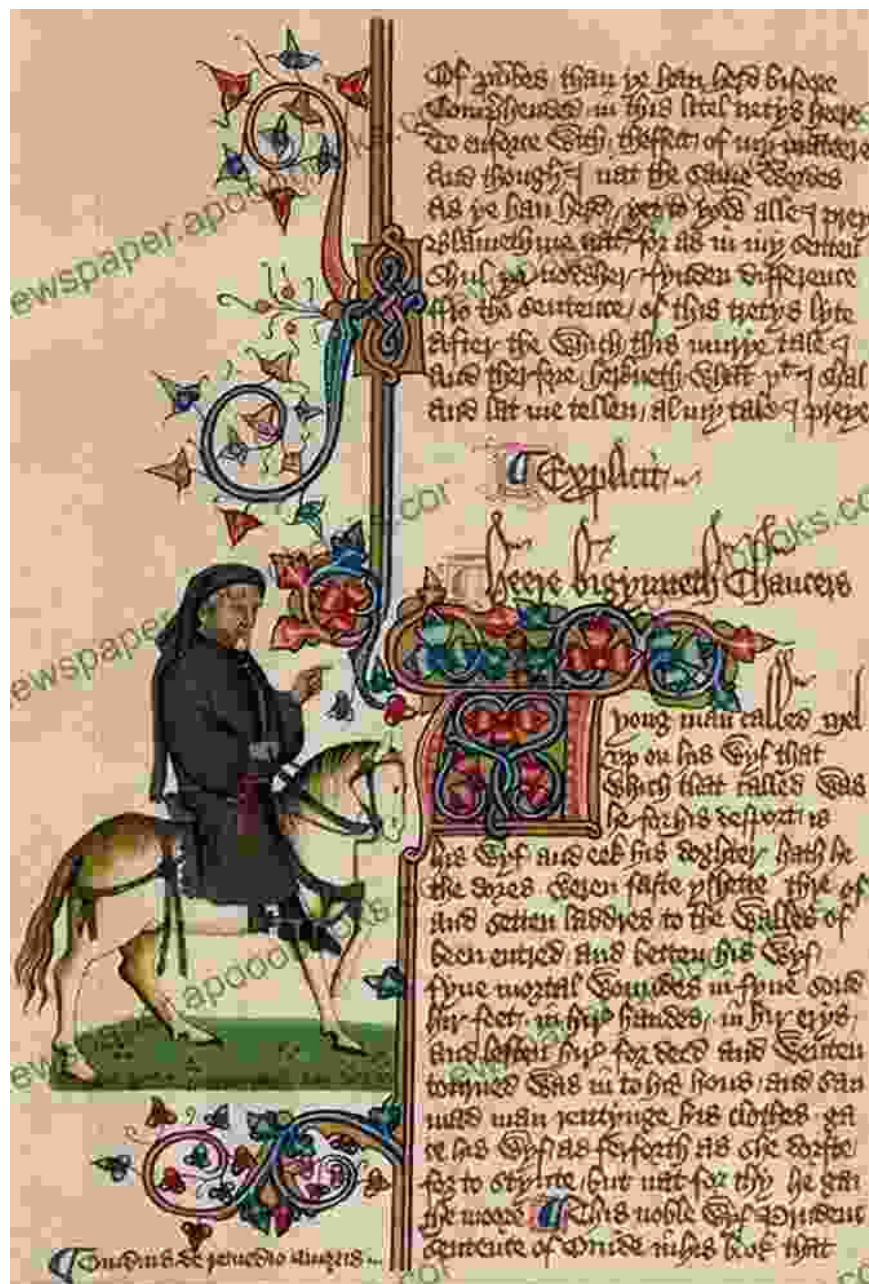 Of prouͥbes than ye han herd bifore
Comprehended in this litel tretys heere
To enforce with theffect of my mateere
And though I nat the same wordes
As ye han herd / yet to yow alle I prey
Blameth me nat / for as in my senten
Shul ye nowher fynden difference
ffro the sentence / of this tretys lyte
After the which this murye tale I
And therfore herkneth what þt I shal
And lat me tellen / al my tale I preye
Explicit
Heere bigynneth Chaucers
young man called Mel
vp on his wyf that
which that called was
he for his desport is
his wyf and eek his doghter / hath he
the dores weren faste yshette / thre of
and setten laddres to the walles of
been entred / and betten his wyf /
fyue mortal woundes in fyue sond
hir feet / in hir handes / in hir erys /
and leften hir for deed and wenten
torned was in to his hous / and saw
mad man rentynge his clothes ga
his wyf / as ferforth as she dorste /
for to stynte / but nat for thy he gan
the moore This noble wyf Prudent
sentence of Ouide in his book that
Ouidius de remedio amoris
newspaper.apodoobooks.com